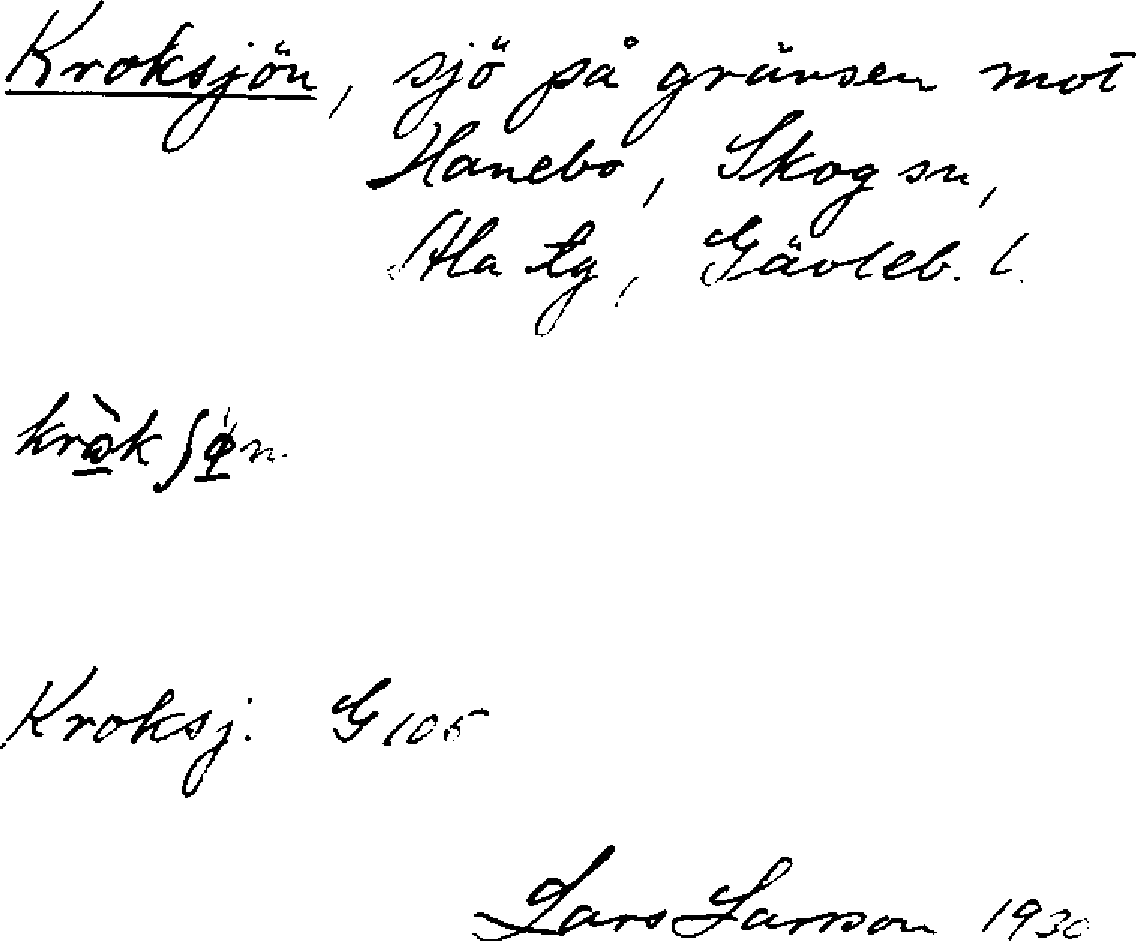 Kroksjön, sjö på gränsen mot
Hanebo, Skog sn,
Ala tg, Gävleb. l.
Kroksj. G 105
Lars Larsson 1930